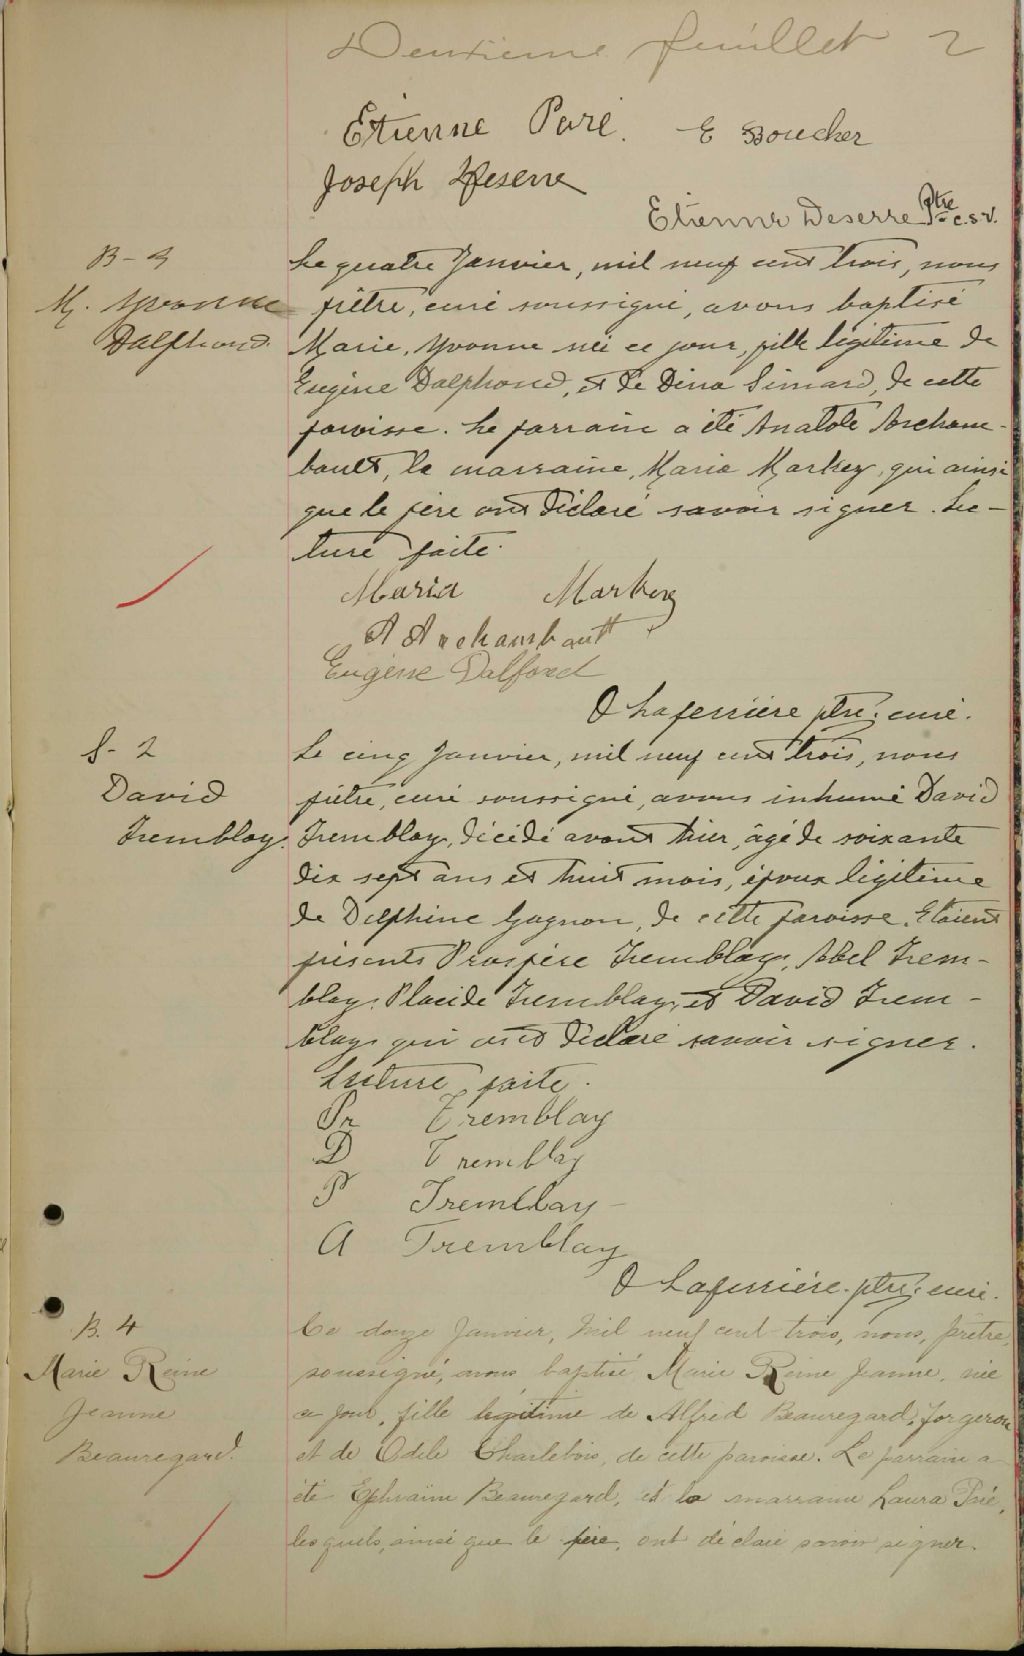 Deuxième feuillet 2
Etienne Paré. E Boucher
Joseph Deserre
Etienne Deserre Ptre c.s.v.
B-3
M. Yvonne
Dalphond.
Le quatre Janvier, mil neuf cent trois, nous
prêtre, curé soussigné, avons baptisé
Marie, Yvonne née ce jour, fille légitime de
Eugène Dalphond, et de Dina Simard, de cette
paroisse. Le parrain a été Anatole Archam-
bault, la marraine, Maria Markey, qui ainsi
que le père ont déclaré savoir signer. Lec-
ture faite.
Maria Markey
A Archambault
Eugène Dalfond
O Laferrière ptre. curé.
S-2
David
Tremblay.
Le cinq Janvier, mil neuf cent trois, nous
prêtre, curé soussigné, avons inhumé David
Tremblay, décédé avant hier, âgé de soixante
dix sept ans et huit mois, époux légitime
de Delphine Gagnon, de cette paroisse. Etaient
présents Prospère Tremblay, Abel Trem-
blay, Placide Tremblay, et David Trem-
blay qui ont déclaré savoir signer.
Lecture faite.
Pr Tremblay
D Tremblay
P Tremblay
A Tremblay
O Laferrière. ptre. curé.
B. 4
Marie Reine
Jeanne
Beauregard.
Ce douze Janvier, Mil neuf cent trois, nous, prêtre,
soussigné, avons baptisé Marie Reine Jeanne, née
ce jour, fille légitime de Alfred Beauregard, forgeron
et de Odile Charlebois, de cette paroisse. Le parrain a
été Ephraïm Beauregard, et la marraine Laura
lesquels, ainsi que le père, ont déclaré savoir signer.